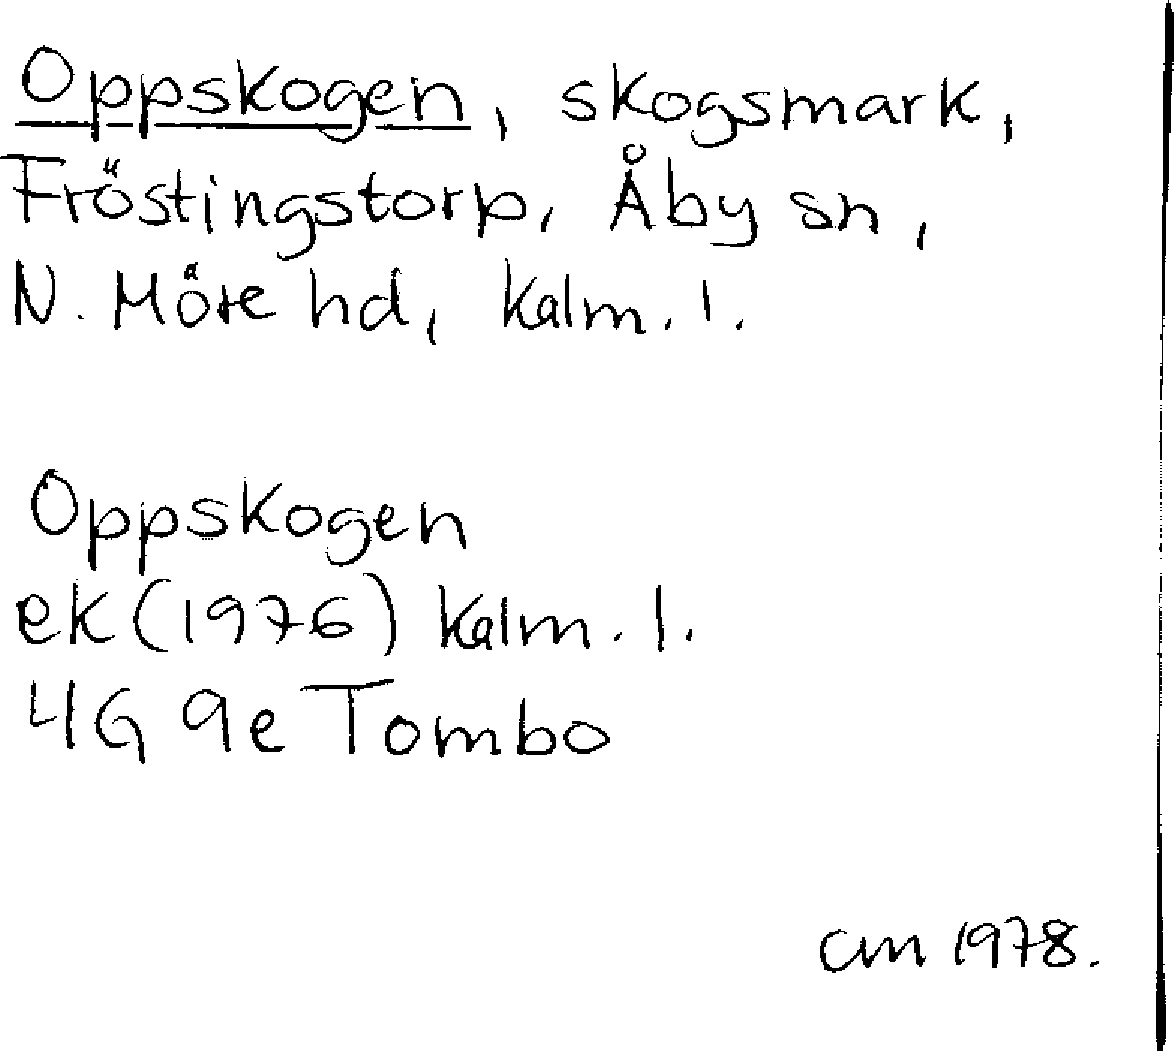 Oppskogen, skogsmark,
Fröstingstorp, Åby sn,
N. Möre hd, Kalm. l.
Oppskogen
ek (1976) Kalm. l.
4G 9e Tombo
CM 1978.